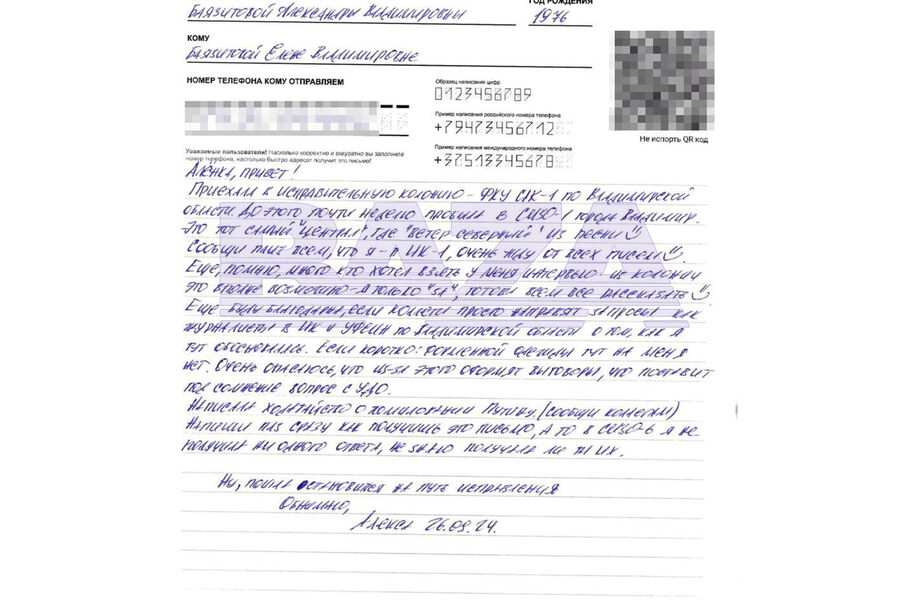 Баязитовой Александры Владимировны
ГОД РОЖДЕНИЯ
1976
КОМУ
Баязитовой Елене Владимировне
НОМЕР ТЕЛЕФОНА КОМУ ОТПРАВЛЯЕМ
Образец написания цифр
0123456789
Пример написания российского номера телефона
+79473456712
Пример написания международного номера телефона
+37513345678
Не испорть QR код
Уважаемые пользователи! Насколько корректно и аккуратно вы заполните
номер телефона, настолько быстро адресат получит это письмо!
Аленка, привет!
Приехала в исправительную колонию - ФКУ ИК-1 по Владимирской
области. До этого почти неделю пробыла в СИЗО-1 города Владимир.
Это тот самый "централ", где "ветер северный" из песни
Сообщи плиз всем, что я - в ИК-1, очень жду от всех писем.
Еще, помню, много кто хотел взять у меня интервью - из колонии
это вполне возможно - я только "за", готова всем все рассказать
Еще буду благодарна, если коллеги просто направят запросы как
журналисты в ИК и УФСИН по Владимирской области о том, как я
тут обосновалась. Если коротко: форменной одежды тут на меня
нет. Очень опасаюсь, что из-за этого оформят выговоры, что поставит
под сомнение вопрос с УДО.
Написала ходатайство о помиловании Путину. (сообщи коллегам)
Напиши плз сразу как получишь это письмо, а то в СИЗО-6 я не
получила ни одного ответа, не знаю получала ли ты их.
Ну, пошла становится на путь исправления
Обнимаю,
Алекса 26.09.24.
BAZA